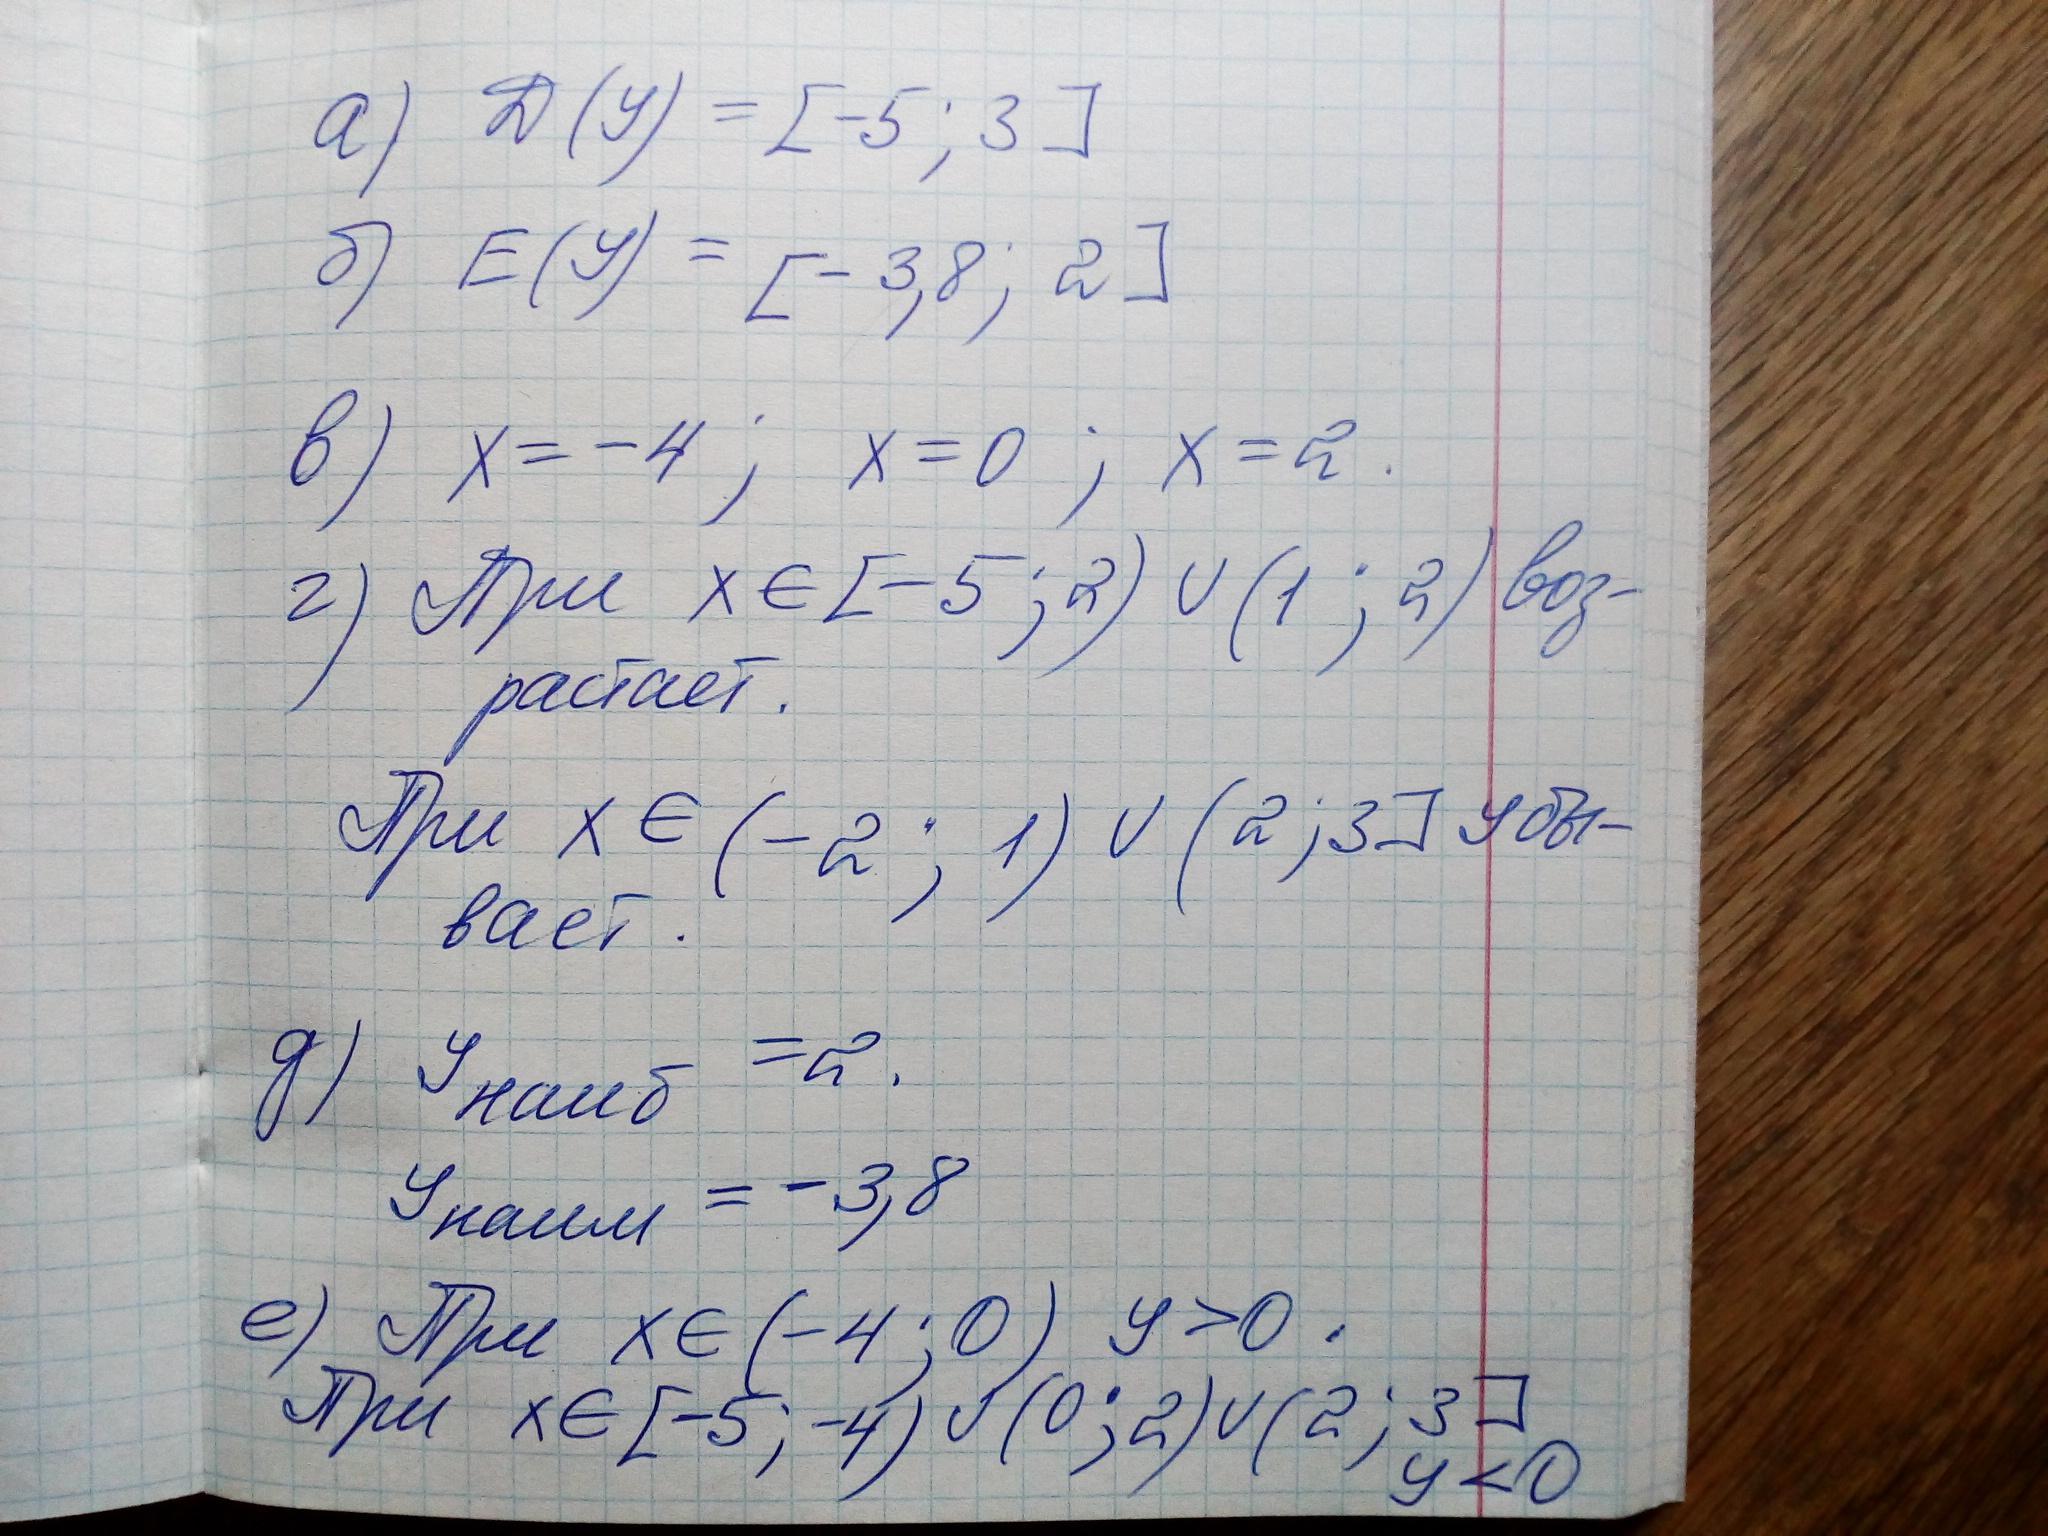 а) Д(у) = [-5; 3]
б) Е(у) = [-3,8; 2]
в) х = -4; х = 0; х = 2.
г) При х ∈ [-5; 2) ∪ (1; 2) воз-
растает.
При х ∈ (-2; 1) ∪ (2; 3] убы-
вает.
д) у наиб = 2.
у наим = -3,8
е) При х ∈ (-4; 0) у > 0.
При х ∈ [-5; -4) ∪ (0; 2) ∪ (2; 3]
у < 0